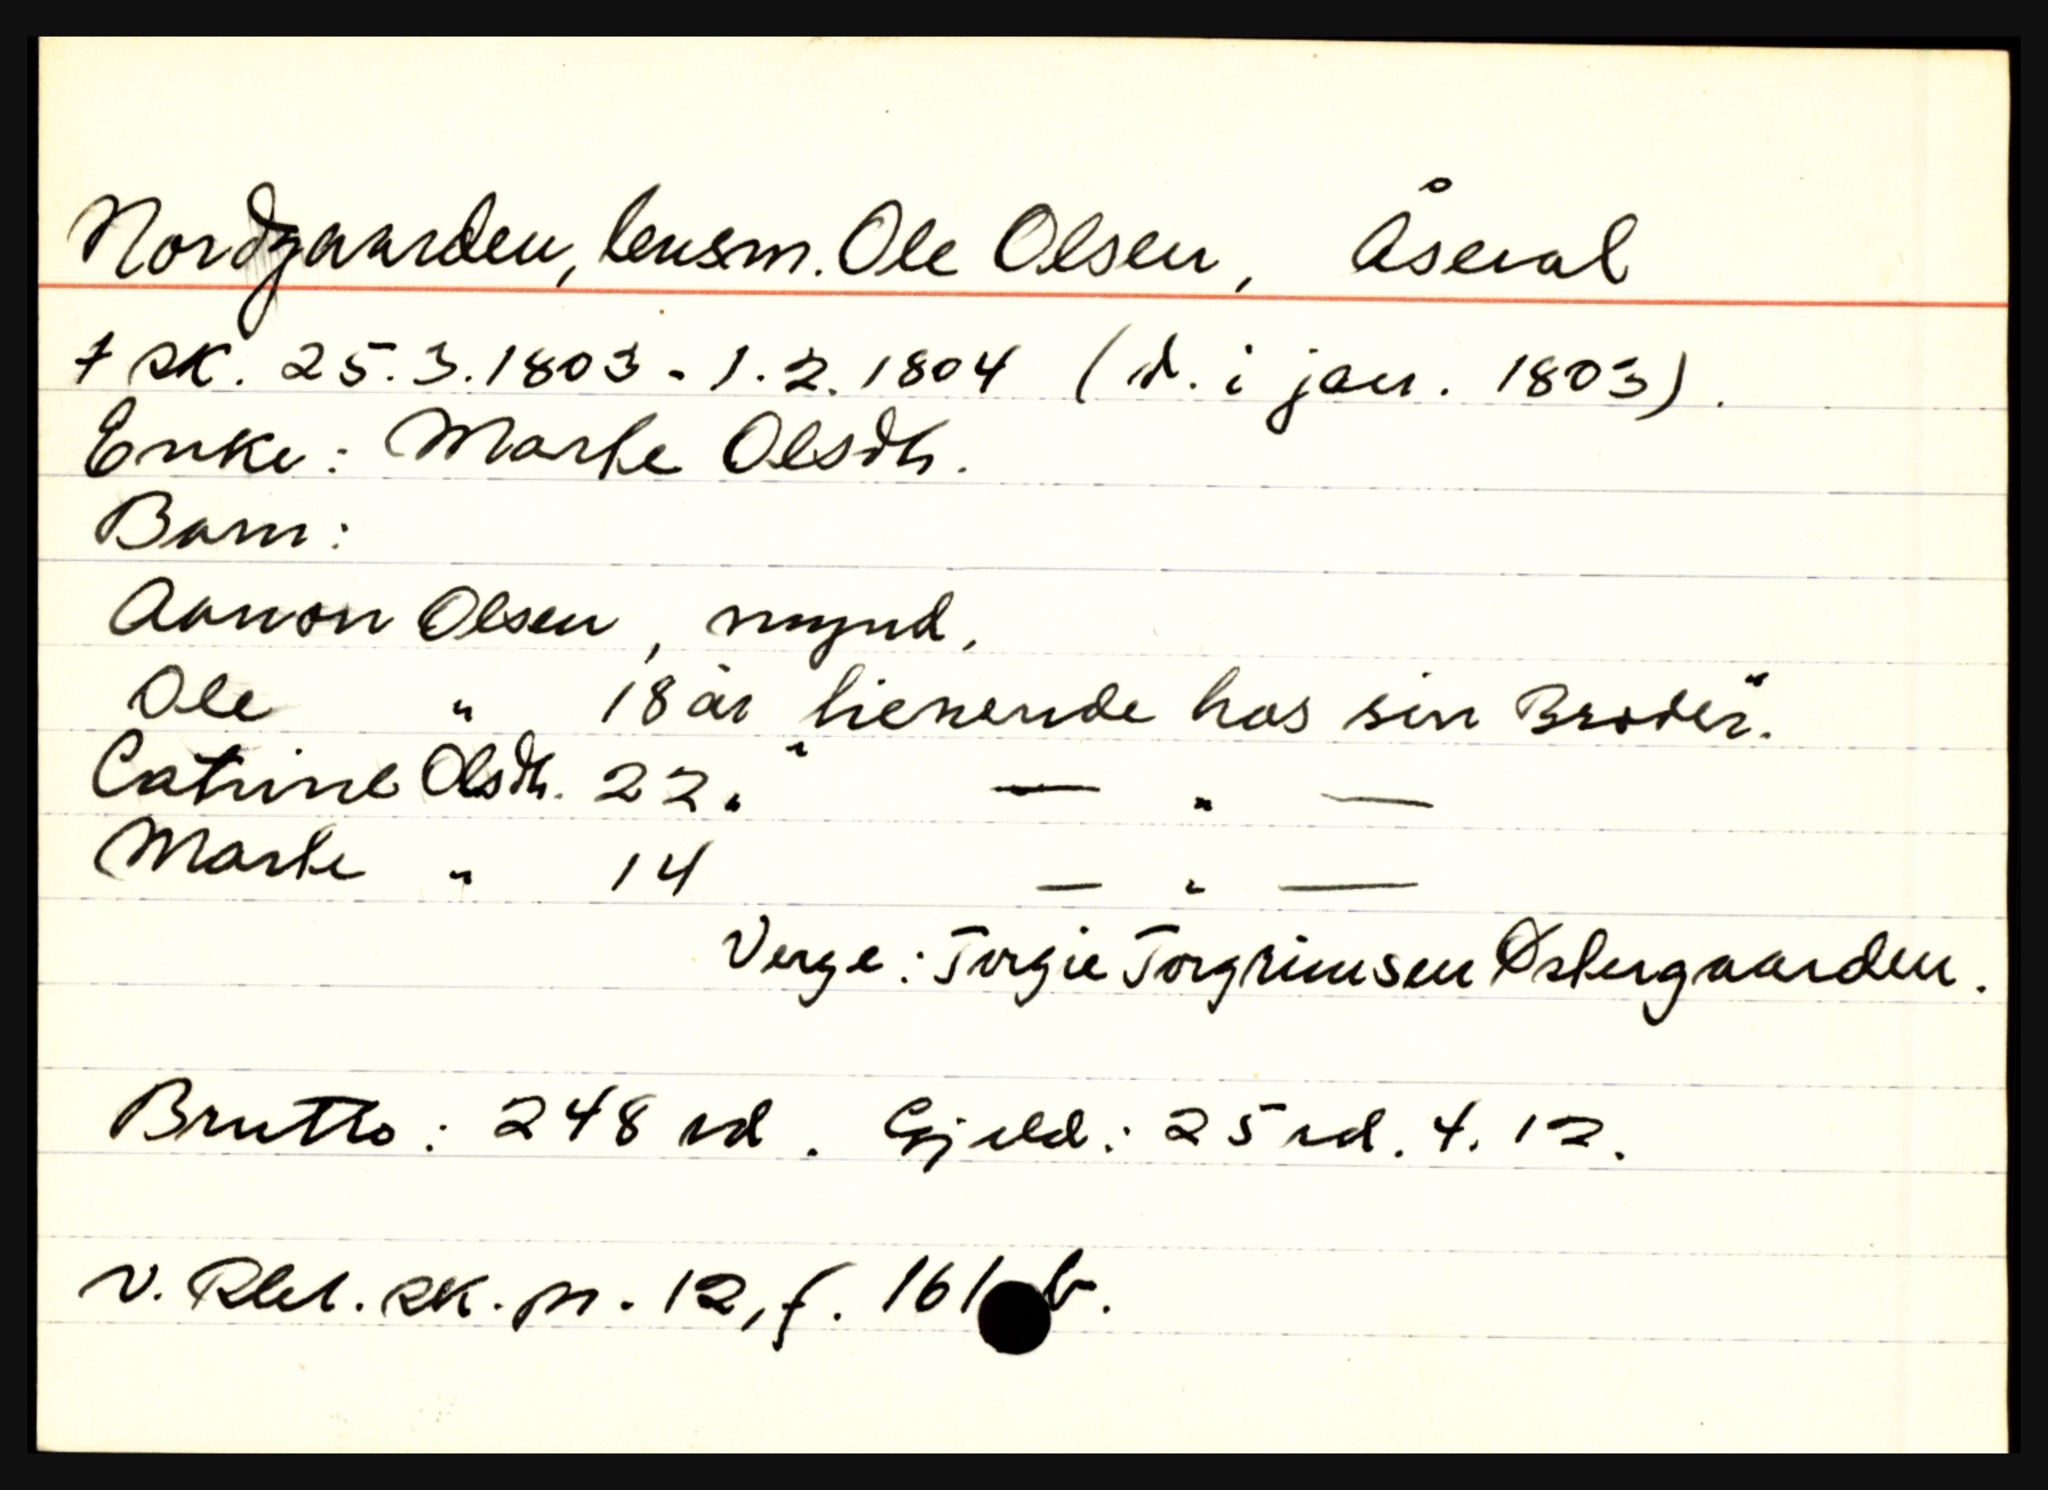 Nordgaarden, lensm. Ole Olsen, Åseral
† sk. 25.3.1803 - 1.2.1804 (d. i jan. 1803).
Enke: Marte Olsdtr.
Barn:
Aanon Olsen, mynd.
Ole " 18 år "tienende hos sin Broder".
Catrine Olsdtr. 22 " — " —
Marte " 14 — " —
Verge: Torgie Torgrimsen Østergaarden.
Brutto: 248 rd. Gjeld: 25 rd. 4. 12.
V. Rbl. sk. pr. 12, f. 161 b.